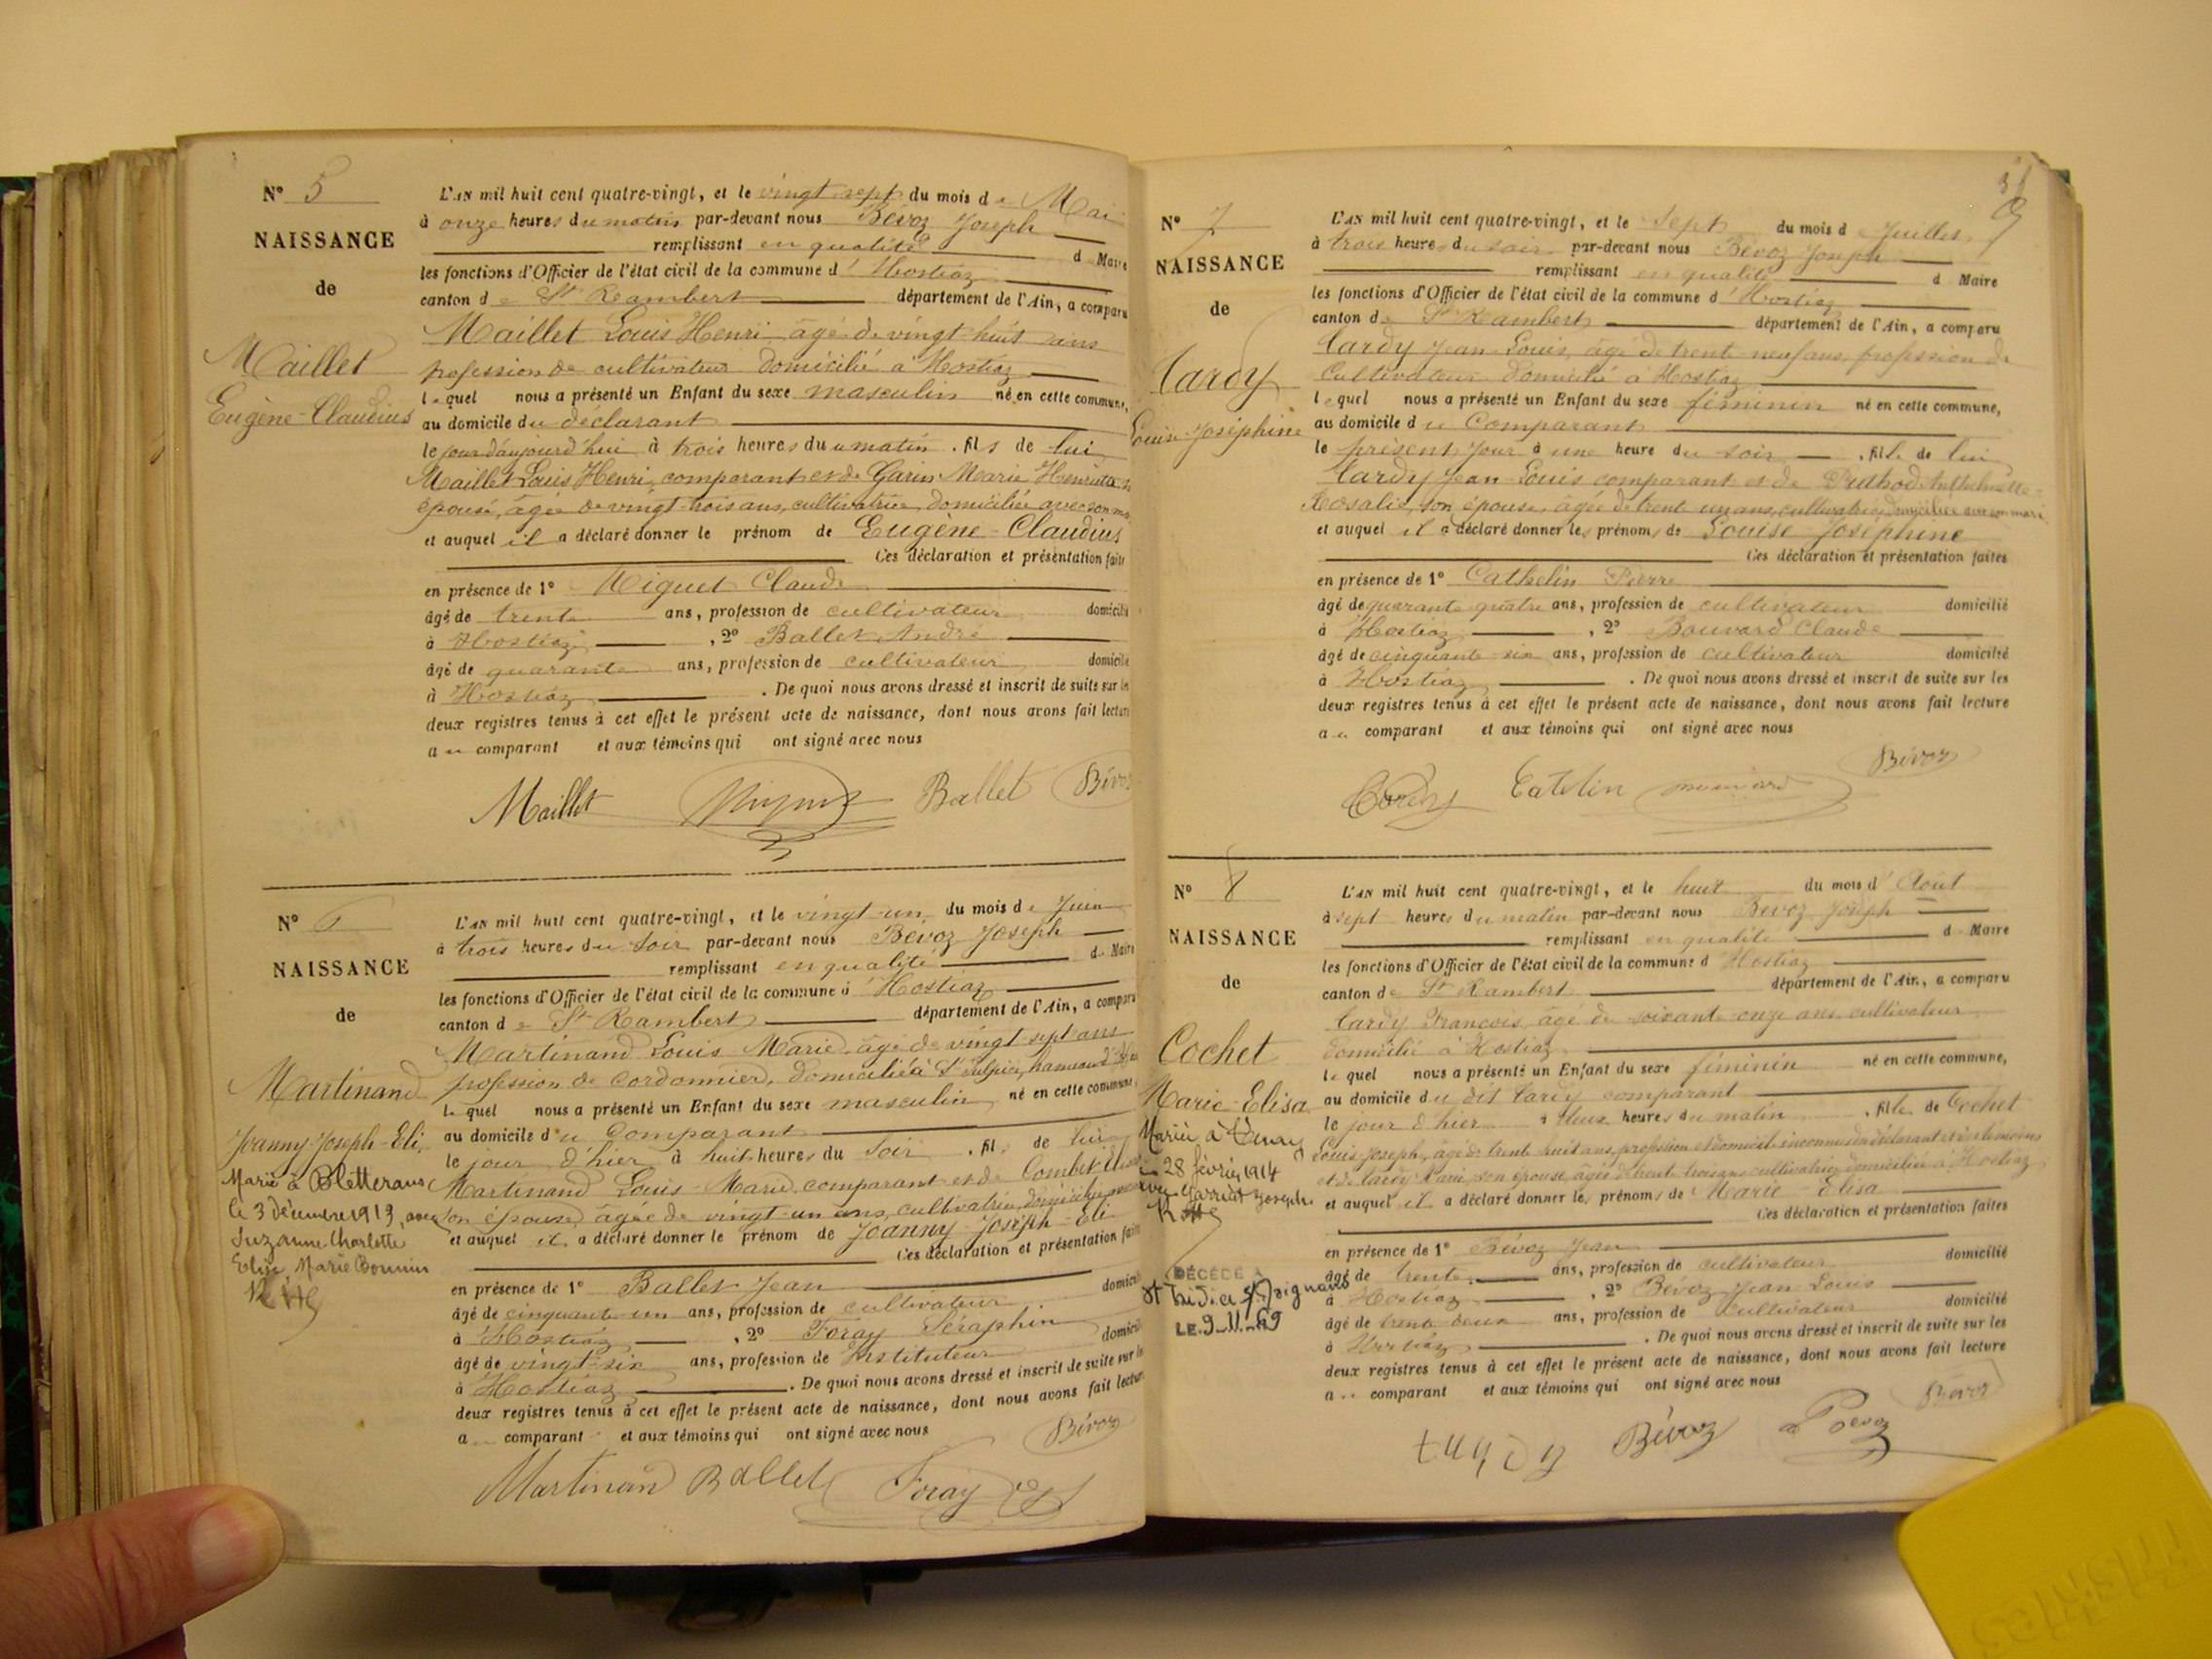 N° 5
NAISSANCE
de
Maillet
Eugène-Claudius
L'AN mil huit cent quatre-vingt, et le vingt sept du mois de Mai
à onze heures du matin par-devant nous Bévoz Joseph
remplissant en qualité de Maire
les fonctions d'Officier de l'état civil de la commune d'Hostiaz
canton de St Rambert département de l'Ain, a comparu
Maillet Louis Henri âgé de vingt huit ans
profession de cultivateur domicilié à Hostiaz
lequel nous a présenté un Enfant du sexe masculin né en cette commune,
au domicile du déclarant
le jour d'aujourd'hui à trois heures du matin, fils de lui
Maillet Louis Henri, comparant et de Garin Marie Henriette
épouse, âgée de vingt-trois ans, cultivatrice, domiciliée avec son
et auquel il a déclaré donner le prénom de Eugène-Claudius
Ces déclaration et présentation faites
en présence de 1° Miguet Claude
âgé de trente ans, profession de cultivateur domicilié
à Hostiaz, 2° Ballet André
âgé de quarante ans, profession de cultivateur domicilié
à Hostiaz. De quoi nous avons dressé et inscrit de suite sur les
deux registres tenus à cet effet le présent acte de naissance, dont nous avons fait lecture
au comparant et aux témoins qui ont signé avec nous
Maillet Miguet Ballet Bévoz
N° 6
NAISSANCE
de
Martinand
Joanny-Joseph-Eli
Marié à Bletterans
le 3 décembre 1913, avec
Suzanne Charlotte
Elise Marie Bonnin
L'AN mil huit cent quatre-vingt, et le vingt-un du mois de Juin
à trois heures du soir par-devant nous Bévoz Joseph
remplissant en qualité de Maire
les fonctions d'Officier de l'état civil de la commune d'Hostiaz
canton de St Rambert département de l'Ain, a comparu
Martinand Louis Marie, âgé de vingt-sept ans
profession de Cordonnier, domicilié à St Sulpice, hameau d'
lequel nous a présenté un Enfant du sexe masculin né en cette commune
au domicile du Comparant
le jour d'hier à huit heures du soir, fils de lui
Martinand Louis-Marie, comparant et de Combet
son épouse, âgée de vingt-un ans, cultivatrice,
et auquel il a déclaré donner le prénom de Joanny-Joseph-Eli
Ces déclaration et présentation faites
en présence de 1° Ballet Jean
âgé de cinquante un ans, profession de cultivateur domicilié
à Hostiaz, 2° Foray Séraphin
âgé de vingt-six ans, profession de Instituteur domicilié
à Hostiaz. De quoi nous avons dressé et inscrit de suite sur les
deux registres tenus à cet effet le présent acte de naissance, dont nous avons fait lecture
au comparant et aux témoins qui ont signé avec nous
Bévoz
Martinand Ballet Foray
N° 7
NAISSANCE
de
Cardy
Louise-Joséphine
L'AN mil huit cent quatre-vingt, et le Sept du mois de Juillet
à trois heures du soir par-devant nous Bévoz Joseph
remplissant en qualité de Maire
les fonctions d'Officier de l'état civil de la commune d'Hostiaz
canton de St Rambert département de l'Ain, a comparu
Cardy Jean-Louis, âgé de trente neuf ans, profession de
Cultivateur domicilié à Hostiaz
lequel nous a présenté un Enfant du sexe féminin né en cette commune,
au domicile du Comparant
le présent jour à une heure du soir, fille de lui
Cardy Jean-Louis comparant et de Puthod Anthelmette
Rosalie, son épouse, âgée de trente un ans, cultivatrice domiciliée avec son mari
et auquel il a déclaré donner les prénoms de Louise Joséphine
Ces déclaration et présentation faites
en présence de 1° Cathelin Pierre
âgé de quarante quatre ans, profession de cultivateur domicilié
à Hostiaz, 2° Bouvard Claude
âgé de cinquante six ans, profession de cultivateur domicilié
à Hostiaz. De quoi nous avons dressé et inscrit de suite sur les
deux registres tenus à cet effet le présent acte de naissance, dont nous avons fait lecture
au comparant et aux témoins qui ont signé avec nous
Bévoz
Cardy Catelin
N° 8
NAISSANCE
de
Cochet
Marie-Elisa
28 février 1914
Joseph
DÉCÉDÉ A
LE 9-11-69
L'AN mil huit cent quatre-vingt, et le huit du mois d'Août
à sept heures du matin par-devant nous Bevoz Joseph
remplissant en qualité de Maire
les fonctions d'Officier de l'état civil de la commune d'Hostiaz
canton de St Rambert département de l'Ain, a comparu
Cardy François, âgé de soixante-onze ans, cultivateur
domicilié à Hostiaz
lequel nous a présenté un Enfant du sexe féminin né en cette commune,
au domicile du dit Cardy comparant
le jour d'hier à deux heures du matin, fille de Cochet
Louis Joseph, âgé de trente huit ans, profession et domicile inconnus du déclarant et des témoins
et de Cardy son épouse, âgée de trente trois ans cultivatrice domiciliée à Hostiaz
et auquel il a déclaré donner les prénoms de Marie-Elisa
Ces déclaration et présentation faites
en présence de 1° Bévoz Jean
âgé de trente ans, profession de cultivateur domicilié
à Hostiaz, 2° Bévoz Jean-Louis
âgé de trente deux ans, profession de cultivateur domicilié
à Hostiaz. De quoi nous avons dressé et inscrit de suite sur les
deux registres tenus à cet effet le présent acte de naissance, dont nous avons fait lecture
au comparant et aux témoins qui ont signé avec nous
Bévoz
Bévoz